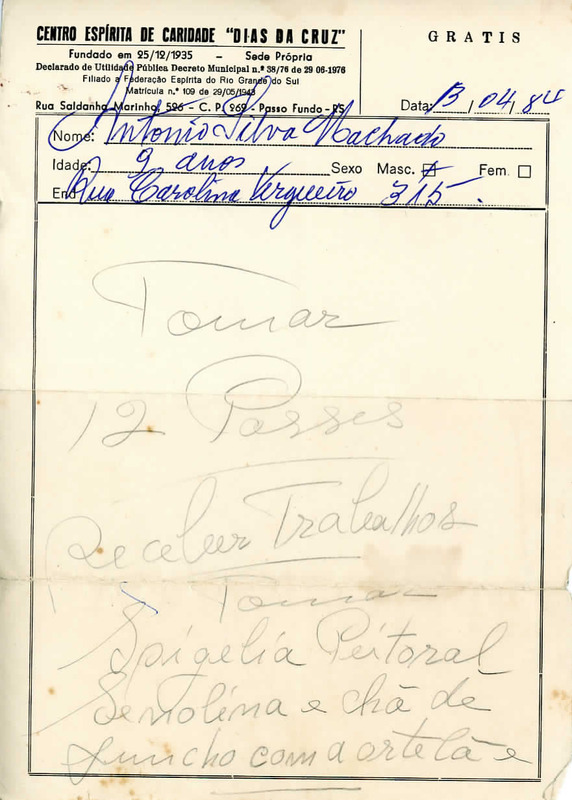 CENTRO ESPÍRITA DE CARIDADE "DIAS DA CRUZ"
GRATIS
Fundado em 25/12/1935 – Sede Própria
Declarado de Utilidade Pública Decreto Municipal n.º 38/76 de 29 06-1976
Filiado a Federação Espírita do Rio Grande do Sul
Matrícula n.º 109 de 29/05/1948
Rua Saldanha Marinho, 596 - C. P. 269 - Passo Fundo - RS
Data: 13 / 04 / 84
Nome: Antonio Silva Machado
Idade: 9 anos Sexo Masc. Fem.
End. Rua Carolina Vergueiro 315.
Tomar
12 Passes
Receber Trabalhos
Tomar
Spigelia Peitoral
Senolina e chá de
funcho com a ortelã e